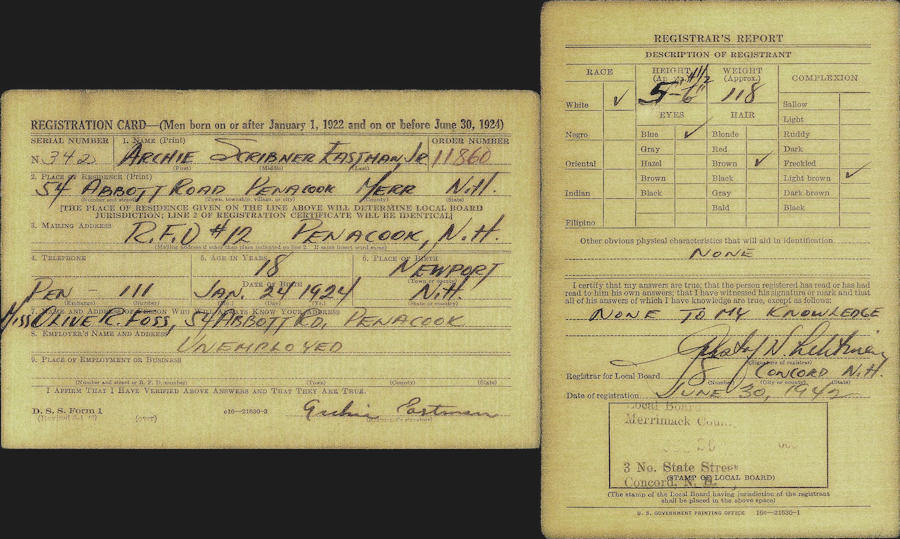 REGISTRATION CARD—(Men born on or after January 1, 1922 and on or before June 30, 1924)
SERIAL NUMBER 1. NAME (Print) ORDER NUMBER
N 342 ARCHIE SCRIBNER EASTMAN JR 11860
(First) (Middle) (Last)
2. PLACE OF RESIDENCE (Print)
54 ABBOTT ROAD PENACOOK MERR N.H.
(Number and street) (Town, township, village, or city) (County) (State)
[THE PLACE OF RESIDENCE GIVEN ON THE LINE ABOVE WILL DETERMINE LOCAL BOARD
JURISDICTION; LINE 2 OF REGISTRATION CERTIFICATE WILL BE IDENTICAL]
3. MAILING ADDRESS
R.F.D #12 PENACOOK, N.H.
(Mailing address if other than place indicated on line 2. If same insert word same)
4. TELEPHONE 5. AGE IN YEARS 6. PLACE OF BIRTH
18 NEWPORT
DATE OF BIRTH (Town or county)
PEN - 111 JAN. 24 1924 N.H.
(Exchange) (Number) (Mo.) (Day) (Yr.) (State or country)
7. NAME AND ADDRESS OF PERSON WHO WILL ALWAYS KNOW YOUR ADDRESS
MISS OLIVE C. FOSS, 54 ABBOTT RD, PENACOOK
8. EMPLOYER'S NAME AND ADDRESS
UNEMPLOYED
9. PLACE OF EMPLOYMENT OR BUSINESS
(Number and street or R. F. D. number) (Town) (County) (State)
I AFFIRM THAT I HAVE VERIFIED ABOVE ANSWERS AND THAT THEY ARE TRUE.
D. S. S. Form 1 (over) 16—21630-2 Archie Eastman
REGISTRAR'S REPORT
DESCRIPTION OF REGISTRANT
RACE HEIGHT (Approx.) WEIGHT (Approx.) COMPLEXION
White ✓ 5-6" 118 Sallow
EYES HAIR Light
Negro Blue ✓ Blonde Ruddy
Gray Red Dark
Oriental Hazel Brown ✓ Freckled
Brown Black Light brown ✓
Indian Black Gray Dark brown
Bald Black
Filipino
Other obvious physical characteristics that will aid in identification
NONE
I certify that my answers are true; that the person registered has read or has had
read to him his own answers; that I have witnessed his signature or mark and that
all of his answers of which I have knowledge are true, except as follows:
NONE TO MY KNOWLEDGE
(Signature of registrar)
Registrar for Local Board 8 CONCORD N.H.
(Number) (City or county) (State)
Date of registration JUNE 30, 1942
Local Board
Merrimack Coun
3 No. State Street
(STAMP OF LOCAL BOARD)
Concord, N. H.
(The stamp of the Local Board having jurisdiction of the registrant
shall be placed in the above space)
U. S. GOVERNMENT PRINTING OFFICE 16—21630-1